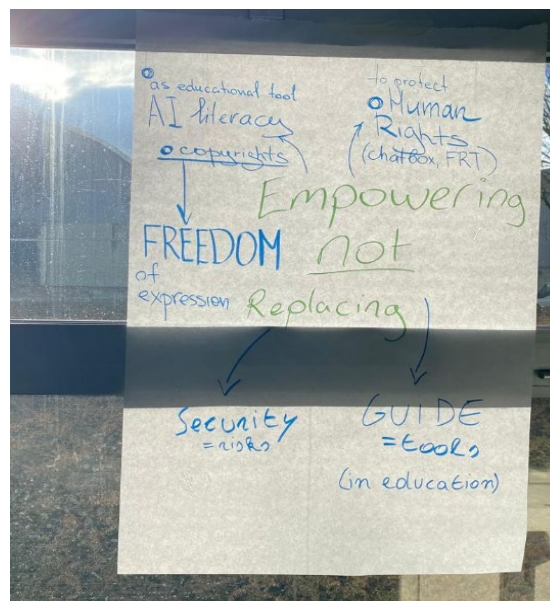 as educational tool
AI literacy
copyrights
to protect
Human
Rights
(chatbox, FRT)
Empowering
not
Replacing
FREEDOM
of
expression
Security
=risks
GUIDE
=tools
(in education)